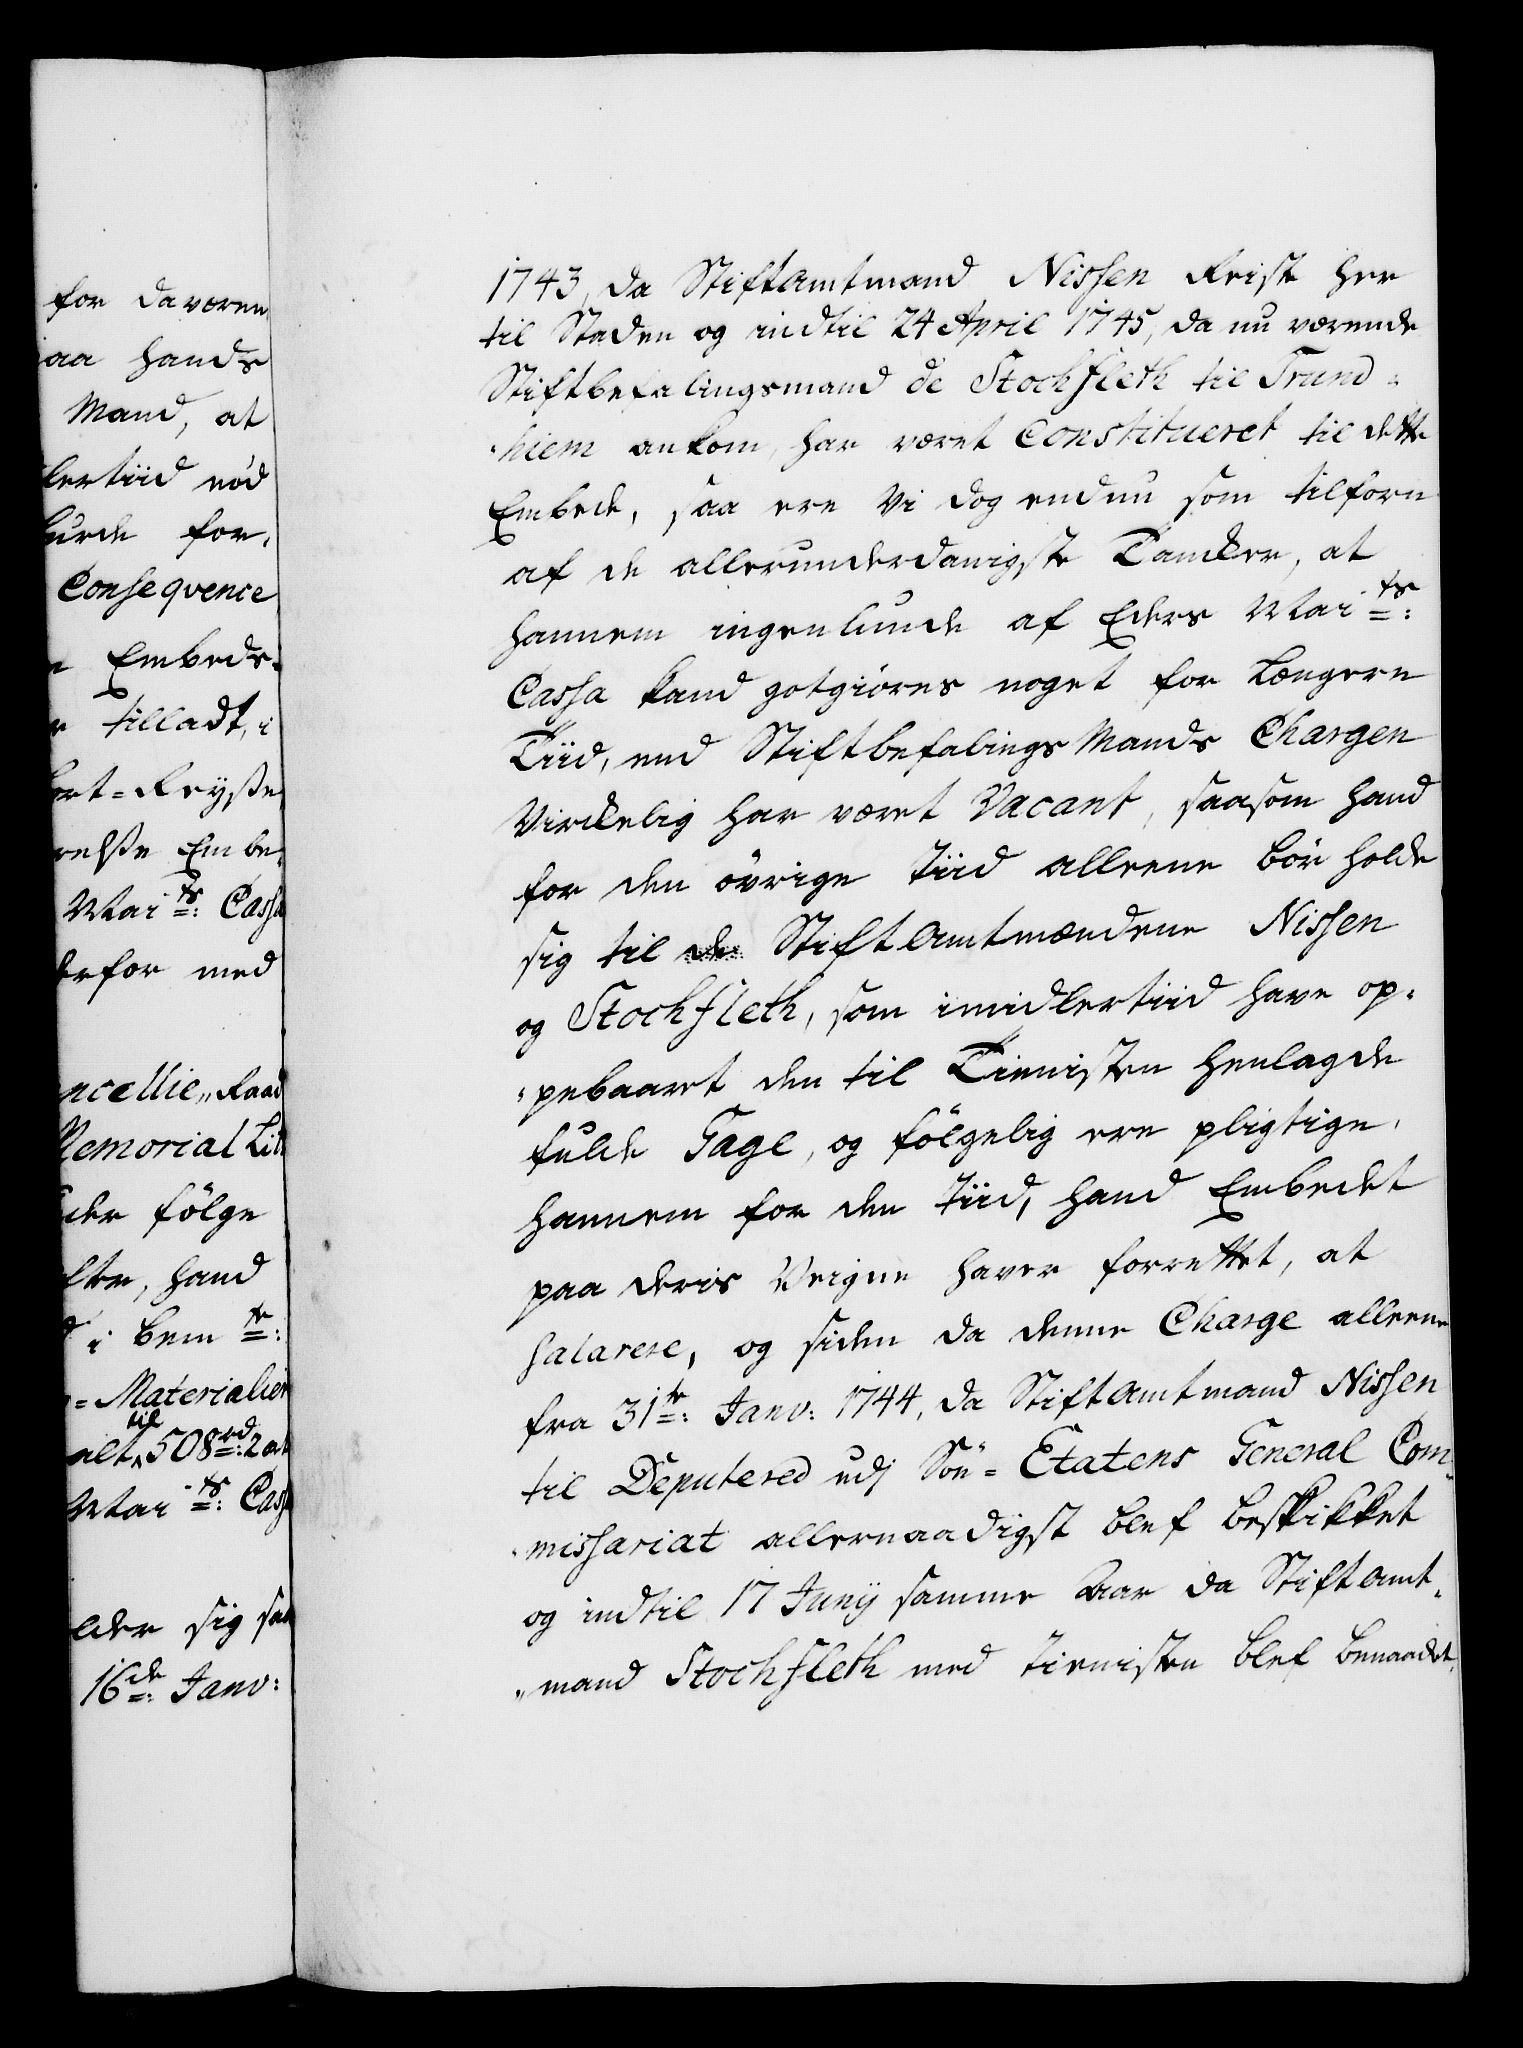 for daværen
aa hands
Mand, at
lertiid nød
burde for,
Conseqvence
Embeds-
tilladt, i
ort-Reyße
relße Embe,
Mai ts: Cassa
derfor med
ncellie„ Raad
Memorial Lit
der følge
lter, hand
i bem te:
= Materialier
til
alt 508 rd: 2 ort
Mai ts: Cass
lder sig saa
16 de: Janv:
1743, da Stiftamtmand Nissen Reist her
til Staden og indtil 24 April 1745, da nu værende
Stiftbefalingsmand de Stochfleth til Trund-
hiem ankom, har været Constitueret til dette
Embede, saa ere Vi dog endnu som tilforn
af de allerunderdanigste Tancker, at
hannem ingenlunde af Eders Mai ts:
Cassa kand gotgiöres noget for længere
Tiid, end Stiftbefalings Mands Chargen
Virckelig har været Vacant, saasom hand
for den övrige Tiid alleene bör holde
sig til de Stiftamtmændene Nissen
og Stochfleth, som imidlertiid have op-
„pebaaret den til Tienisten henlagde
fulde Gage, og fölgelig ere pligtige,
hannem for den Tiid, hand Embedet
paa deris Veigne haver forrettet, at
salarere, og siden da denne Charge alleene
fra 31 te: Janv: 1744, da Stiftamtmand Nissen
til Deputered udj Söe-Etatens General Com-
missariat allernaadigst blef beskikket
og indtil 17 Junij samme Aar da Stiftamt-
„mand Stochfleth med Tienisten blef benaadet,